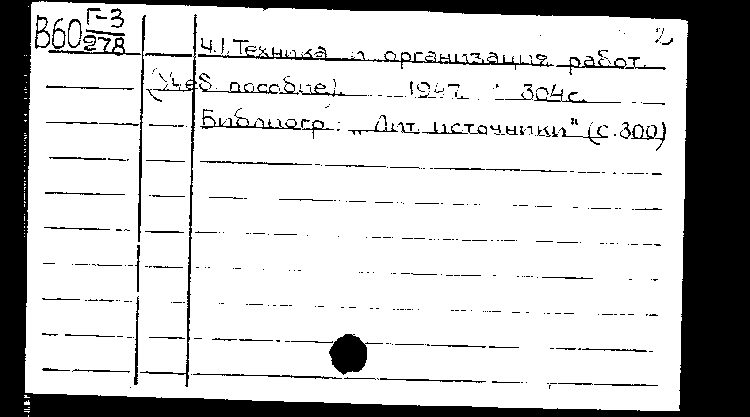 В60 Г-3/278
2
Ч.1. Техника и организация работ.
(Учеб. пособие). 1947. 304с.
Библиогр.: „Лит. источники" (с.300)